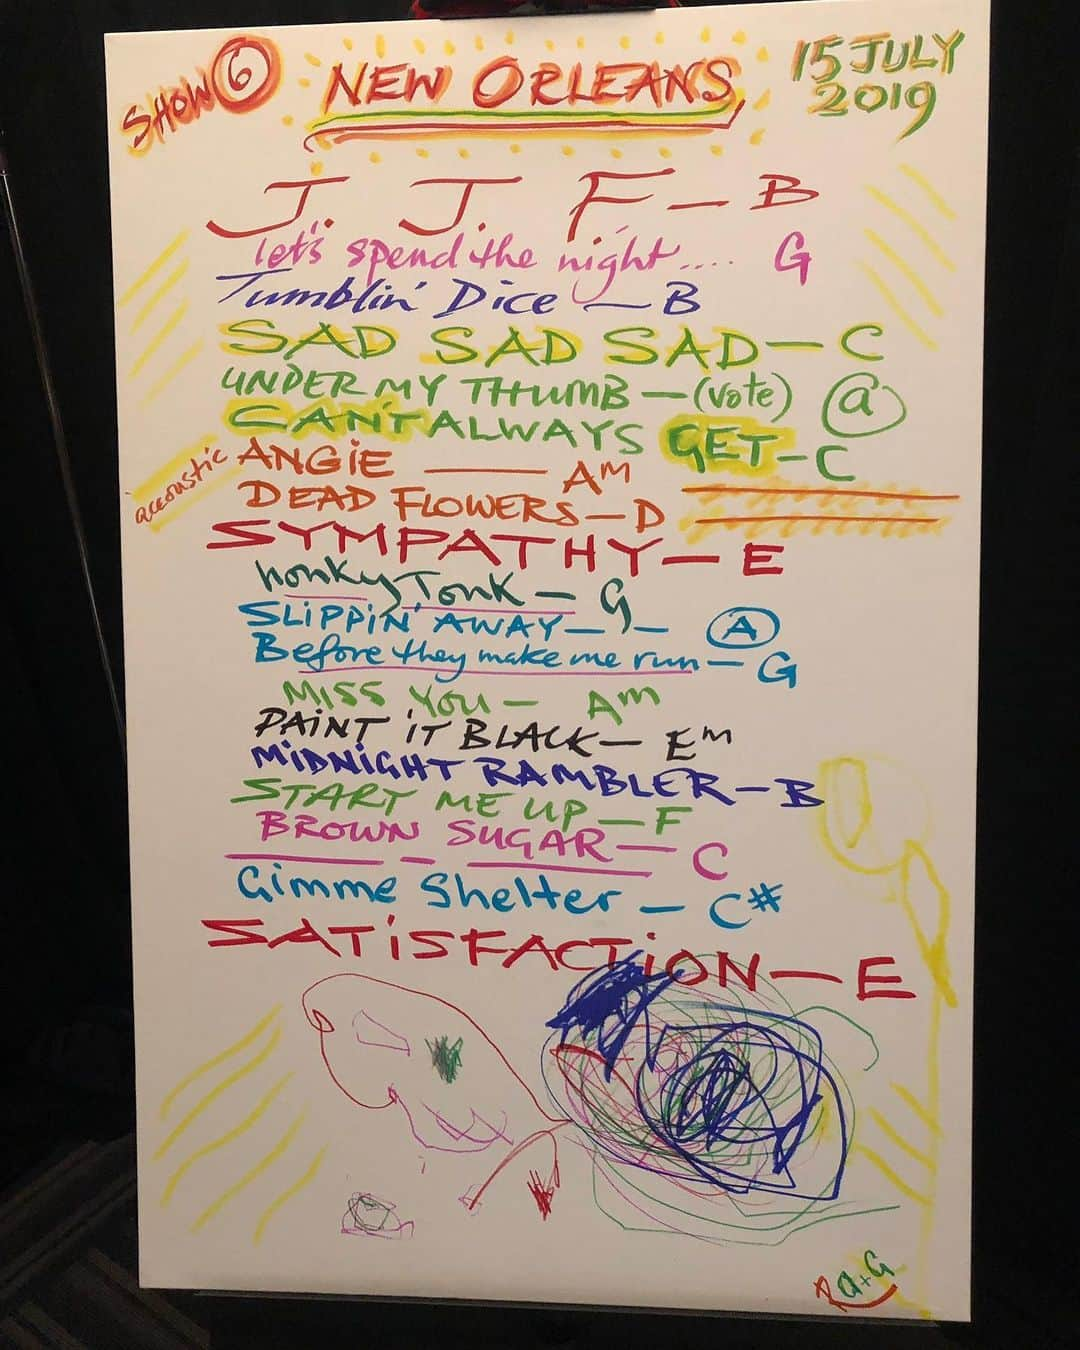 SHOW 6 NEW ORLEANS 15 JULY 2019
J. J. F - B
let's spend the night.... G
Tumblin' Dice - B
SAD SAD SAD - C
UNDER MY THUMB - (vote) a
CAN'T ALWAYS GET - C
accoustic
ANGiE — Am
DEAD FLOWERS - D
SYMPATHY - E
honky Tonk - G
SLiPPiN' AWAY - - A
Before they make me run - G
Miss You - Am
PAiNT iT BLACK - Em
MiDNiGHT RAMBLER - B
START ME UP - F
BROWN SUGAR - C
Gimme Shelter - C#
SATiSFACTiON - E